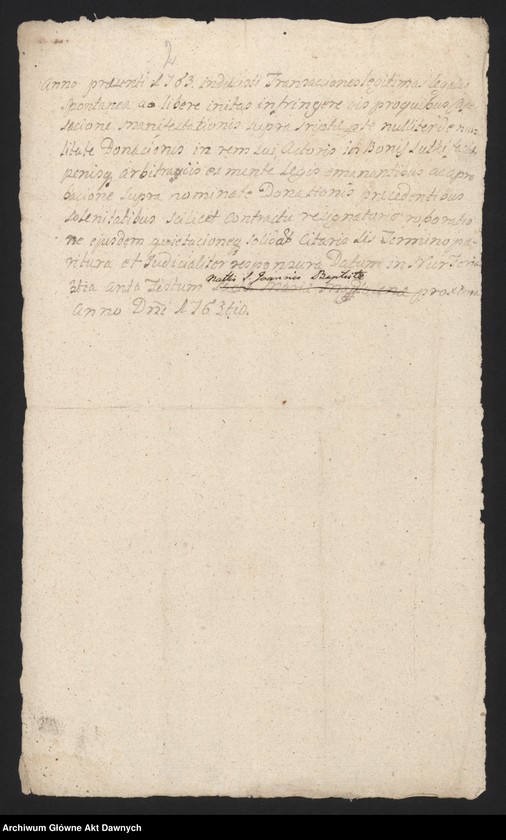 2
Anno presenti 1763. Indicati Transaciones legitimas legales
Spontanea ac libere initas infringere
sacione manifestationis supra nulliter de nul
litate Donacionis in rem sui Actoris in Bonis
penisq arbitrariis ex mente Legis emanantibus ac apro
bacione supra nominate Donationis precedentibus
solenitatibus scilicet Contractu resignatario roboratio
ne ejusdem quietacioneq Citaria sis Termino pa
ritura et Judicialiter responzura Datum in Nur
3tia Ante Festum proxime
Natti S Joannis Baptiste
Anno Dni 1763tio.
Archiwum Główne Akt Dawnych